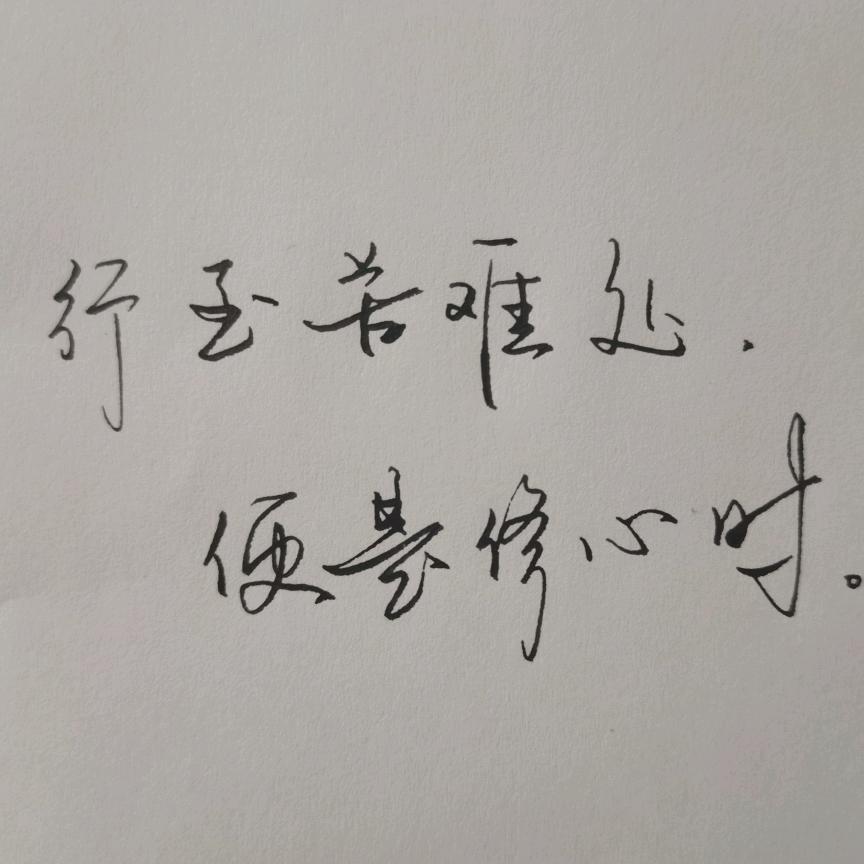 行至苦难处.
便是修心时。